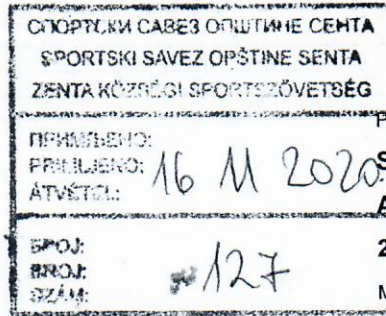 СПОРТСКИ САВЕЗ ОПШТИНЕ СЕНТА
SPORTSKI SAVEZ OPŠTINE SENTA
ZENTA KÖZSÉGI SPORTSZÖVETSÉG
ПРИМЉЕНО:
PRIMLJENO: 16 11 2020
ÁTVÉTEL:
БРОЈ:
BROJ: 127
SZÁM:
P
S
A
2
M